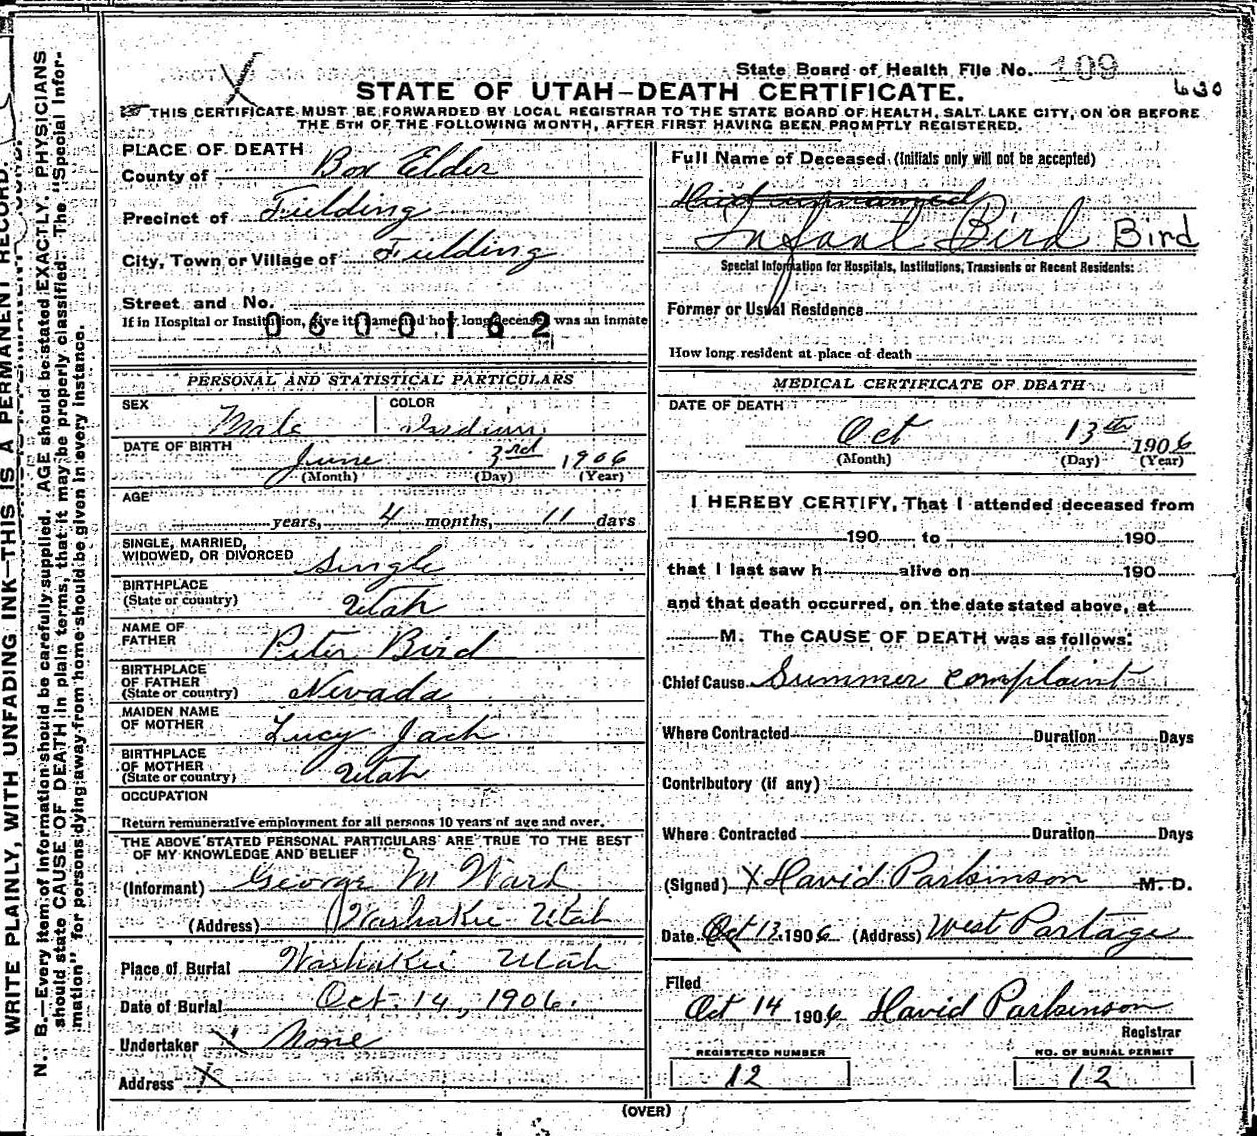 State Board of Health File No. 109
630
X
STATE OF UTAH—DEATH CERTIFICATE.
☞ THIS CERTIFICATE MUST BE FORWARDED BY LOCAL REGISTRAR TO THE STATE BOARD OF HEALTH, SALT LAKE CITY, ON OR BEFORE
THE 5TH OF THE FOLLOWING MONTH, AFTER FIRST HAVING BEEN PROMPTLY REGISTERED.
WRITE PLAINLY, WITH UNFADING INK—THIS IS A PERMANENT RECORD.
N. B.—Every item of information should be carefully supplied. AGE should be stated EXACTLY. PHYSICIANS
should state CAUSE OF DEATH in plain terms, that it may be properly classified. The "Special Infor-
mation" for persons dying away from home should be given in every instance.
PLACE OF DEATH
County of Box Elder
Precinct of Fielding
City, Town or Village of Fielding
Street and No.
If in Hospital or Institution, give its name and how long deceased was an inmate
0600162
PERSONAL AND STATISTICAL PARTICULARS
SEX Male COLOR Indian
DATE OF BIRTH June 3rd 1906
(Month) (Day) (Year)
AGE
years, 4 months, 11 days
SINGLE, MARRIED,
WIDOWED, OR DIVORCED Single
BIRTHPLACE
(State or country) Utah
NAME OF
FATHER Peter Bird
BIRTHPLACE
OF FATHER
(State or country) Nevada
MAIDEN NAME
OF MOTHER Lucy Jack
BIRTHPLACE
OF MOTHER
(State or country) Utah
OCCUPATION
Return remunerative employment for all persons 10 years of age and over.
THE ABOVE STATED PERSONAL PARTICULARS ARE TRUE TO THE BEST
OF MY KNOWLEDGE AND BELIEF
(Informant) George M Ward
(Address) Washakie Utah
Place of Burial Washakie Utah
Date of Burial Oct. 14, 1906.
Undertaker X None
Address X
Full Name of Deceased (Initials only will not be accepted)
Infant Bird Bird
Special Information for Hospitals, Institutions, Transients or Recent Residents:
Former or Usual Residence
How long resident at place of death
MEDICAL CERTIFICATE OF DEATH
DATE OF DEATH
Oct 13th 1906
(Month) (Day) (Year)
I HEREBY CERTIFY, That I attended deceased from
190 to 190
that I last saw h alive on 190
and that death occurred, on the date stated above, at
M. The CAUSE OF DEATH was as follows:
Chief Cause Summer complaint
Where Contracted Duration Days
Contributory (if any)
Where Contracted Duration Days
(Signed) X David Parkinson M. D.
Date Oct 13, 1906 (Address) West Portage
Filed
Oct 14 1906 David Parkinson
Registrar
REGISTERED NUMBER
12
NO. OF BURIAL PERMIT
12
(OVER)